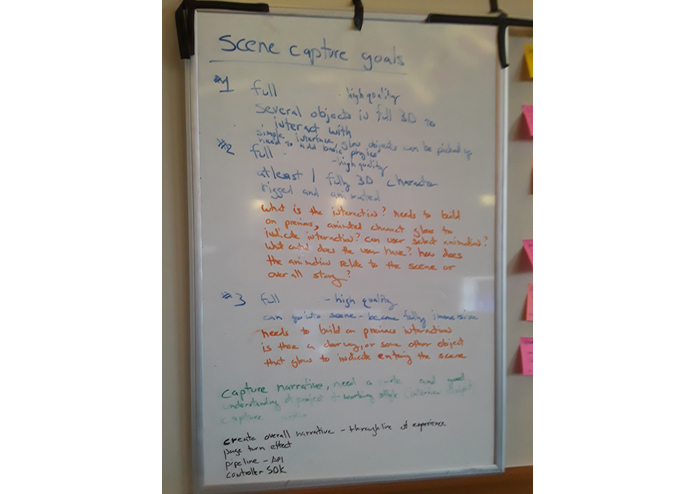 Scene capture goals
#1 full - high quality
several objects in full 3D to
interact with
simple interface, glow objects can be picked up
need to add basic physics
#2 full - high quality
at least 1 fully 3D character
rigged and animated
what is the interaction? needs to build
on previous, animated character glows to
indicate interaction? can user select animation?
what control does the user have? how does
the animation relate to the scene or
overall story?
#3 full - high quality
can go into scene - become fully immersive
needs to build on previous interaction
is there a doorway, or some other object
that glows to indicate entering the scene
capture narrative, need a and good
understanding of project working style
capture
create overall narrative - throughline of experience
page turn effect
pipeline - API
controller SDK